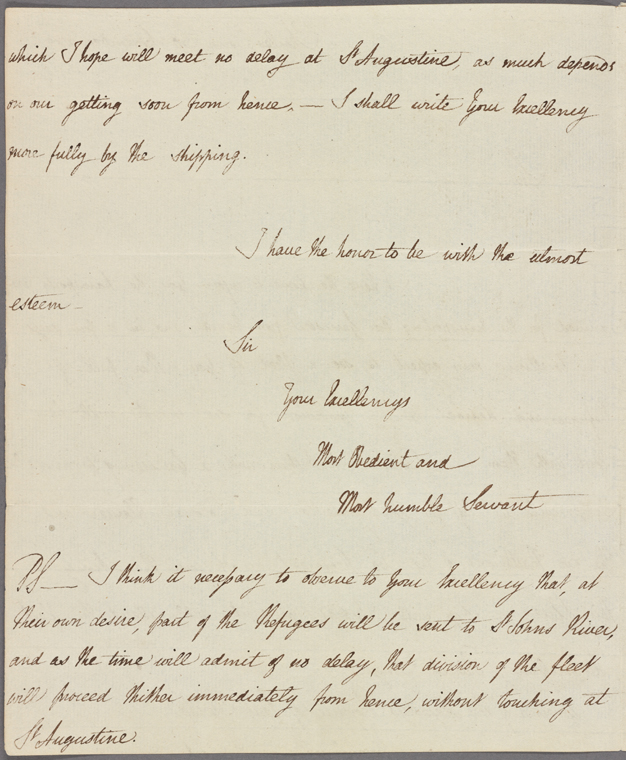 which I hope will meet no delay at St Augustine, as much depends
on our getting soon from hence. — I shall write Your Excellency
more fully by the shipping.
I have the honor to be with the utmost
esteem —
Sir
Your Excellencys
Most Obedient and
Most humble Servant
PS — I think it necessary to observe to Your Excellency that, at
their own desire, part of the Refugees will be sent to St Johns River,
and as the time will admit of no delay, that division of the fleet
will proceed thither immediately from hence, without touching at
St Augustine.